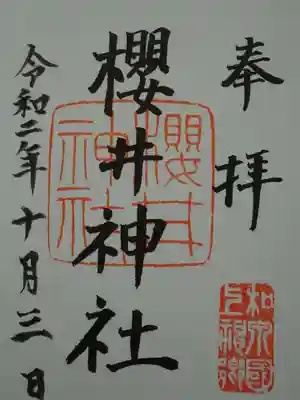 奉拝
櫻井神社
櫻井神社
令和二年十月三日